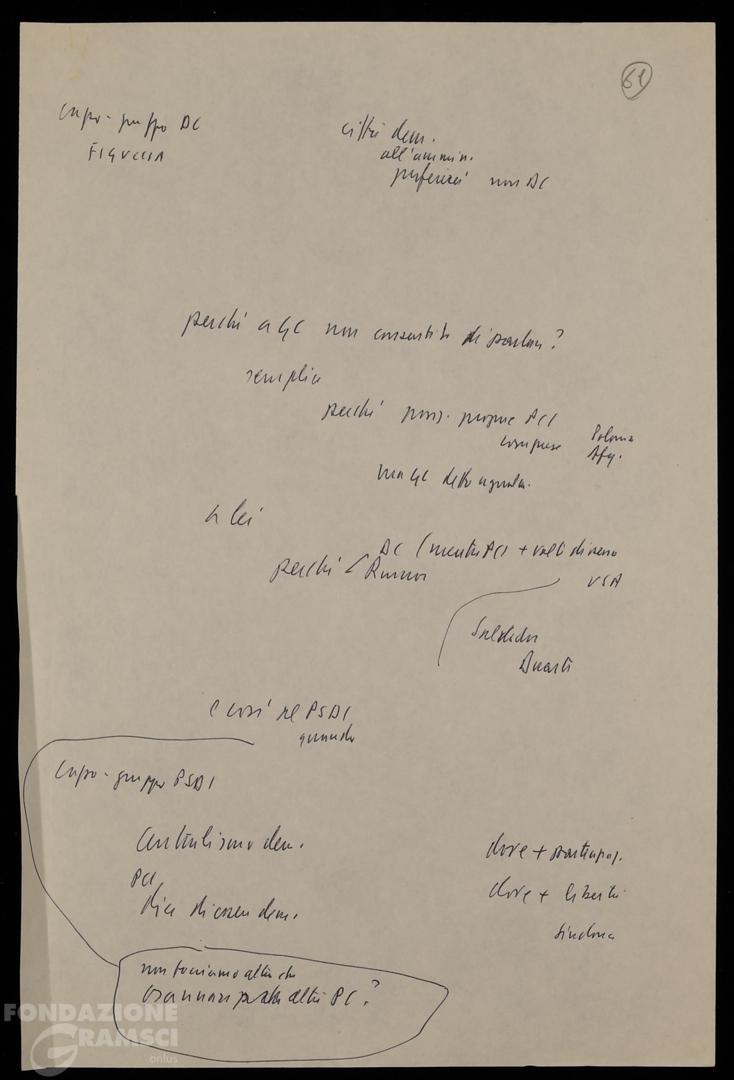 61
capo-gruppo DC
FIGUCCIA
città dem.
all'ammin.
preferenze non DC
perché a GC non consentito di parlare?
semplice
perché posiz. proprie PCI
comprese Polonia
Afg.
ma GC detto
a lei
perché DC (mentre PCI) + volte
Rumor
USA
Salvador
Duarte
e così nel PSDI
quando
capo-gruppo PSDI
Centralismo dem.
PCI
dice di essere dem.
dove + partecipaz.
dove + libertà
non facciamo altro che
altri PC?
FONDAZIONE
GRAMSCI
onlus